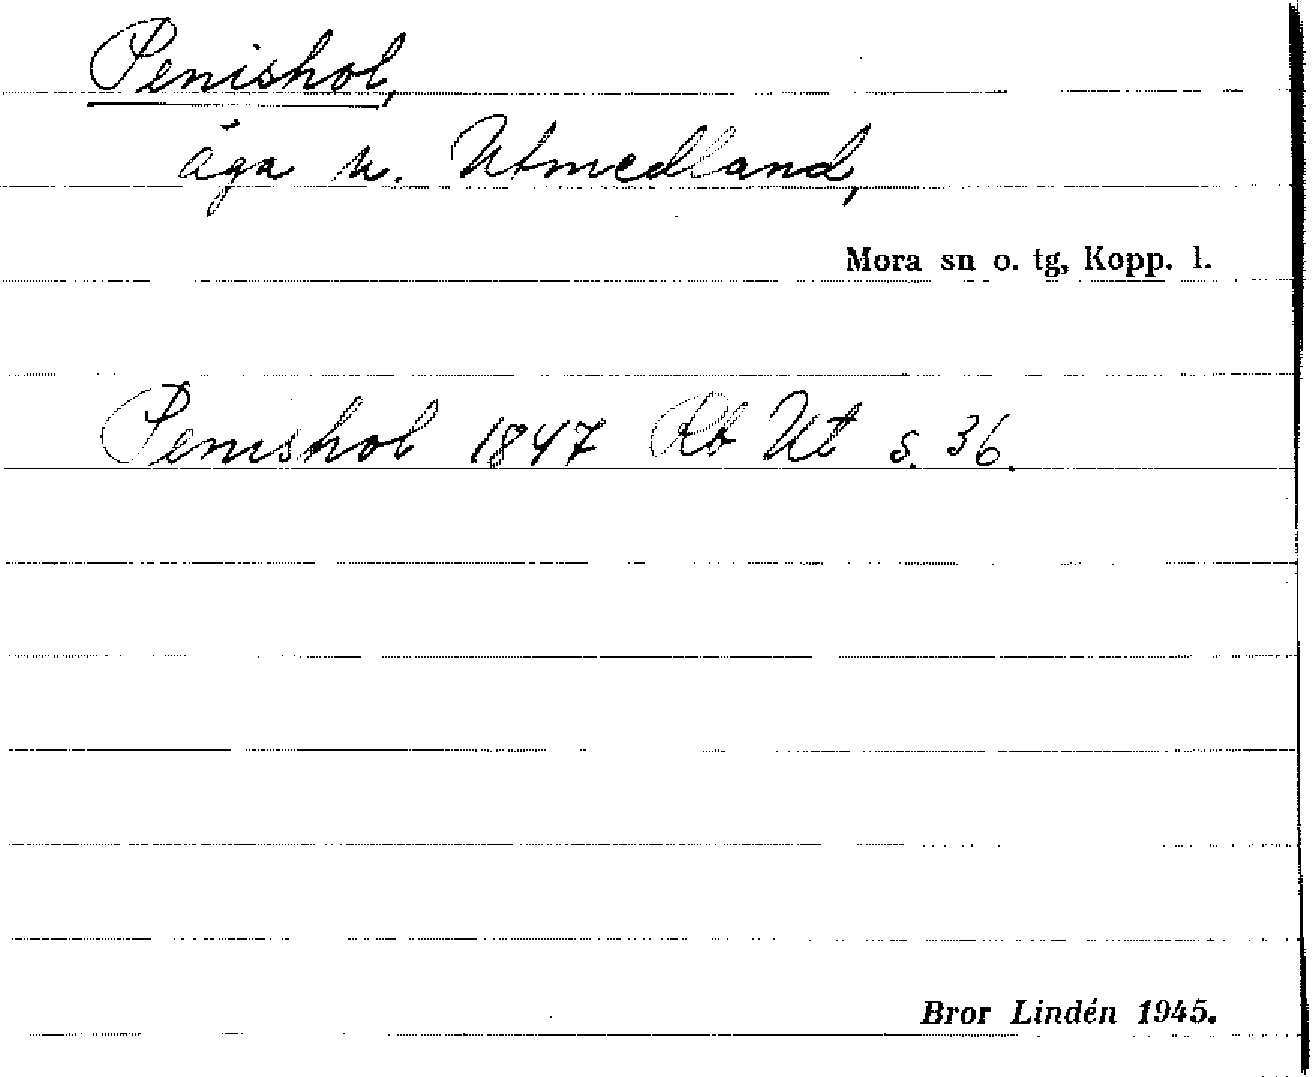 Penishol,
äga u. Utmedland,
Mora sn o. tg, Kopp. l.
Penishol 1847 Rb Ut s. 36.
Bror Lindén 1945.